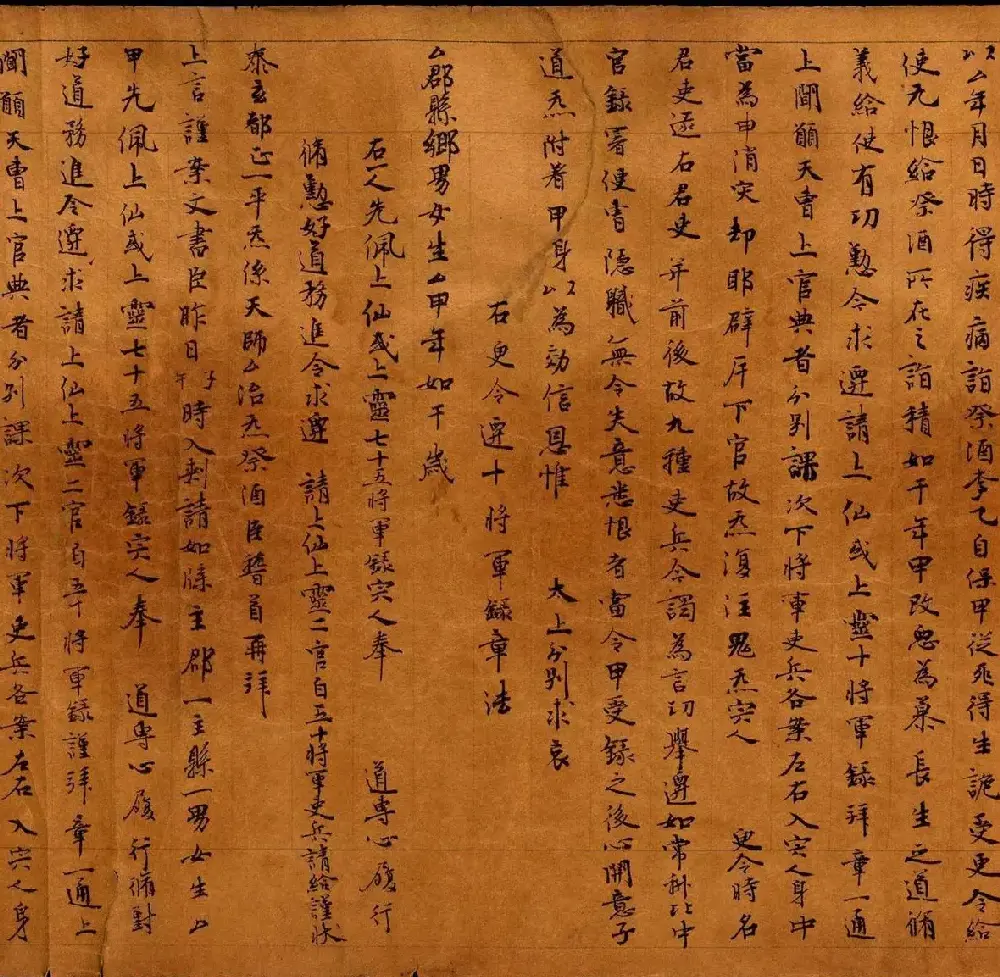 以厶年月日時得疾病詣祭酒李乙自保甲從死得生詭受更令給
使无恨給祭酒所在之詣積如干年甲改惡為慕長生之道脩
義給使有功懃令求遷請上仙或上靈十將軍録拜章一通
上聞願天曹上官典者分别課次下將軍吏兵各案左右入宍人身中
當為甲消灾却耶辟斥下官故炁復注鬼炁宍人 更令時名
君吏逐右君吏并前後故九種吏兵令謁為言功舉遷如常科比中
官録署便曹隠職無令失意恚恨者當令甲受録之後心開意予
道炁附着甲身以為効信恩惟 太上分别求哀
右更令遷十將軍録章法
厶郡縣鄉男女生厶甲年如干歲
右一人先佩上仙或上靈七十五將軍録宍人奉 道專心履行
脩懃好道務進令求遷 請上仙上靈二官百五十將軍吏兵請給謹狀
泰玄都正一平炁係天師厶治炁祭酒臣稽首再拜
上言謹案文書臣昨日子午時入刺請如牒主郡一主縣一男女生厶
甲先佩上仙或上靈七十五將軍録宍人奉 道專心履行脩對
好道務進令遷求請上仙上靈二官百五十將軍録謹拜章一通上
聞願天曹上官典者分别課次下將軍吏兵各案左右入宍人身